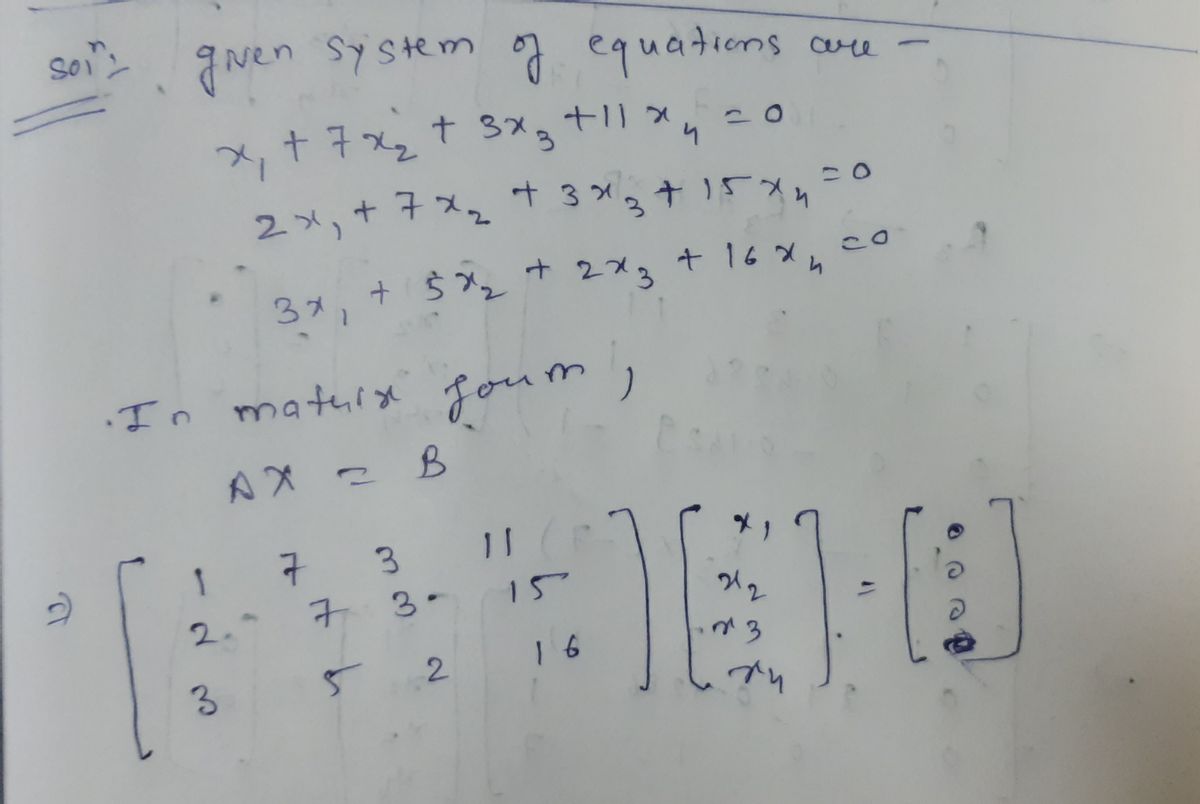 solⁿ:- given system of equations are -
x₁ + 7x₂ + 3x₃ + 11x₄ = 0
2x₁ + 7x₂ + 3x₃ + 15x₄ = 0
3x₁ + 5x₂ + 2x₃ + 16x₄ = 0
In matrix form,
AX = B
⇒ [ 1 7 3 11 ] [ x₁ ] = [ 0 ]
[ 2 7 3 15 ] [ x₂ ] [ 0 ]
[ 3 5 2 16 ] [ x₃ ] [ 0 ]
[ x₄ ]